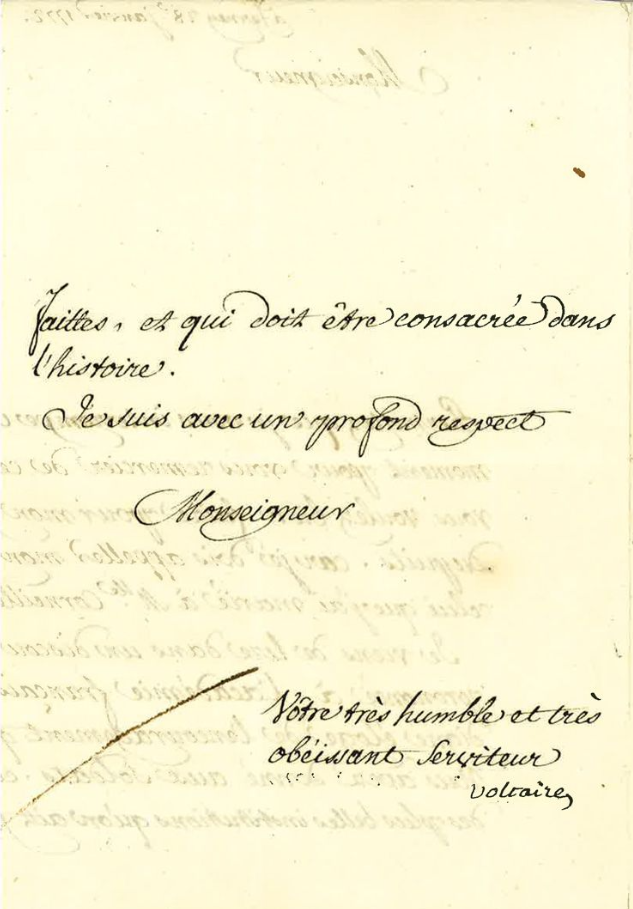 faittes, et qui doit être consacrée dans
l'histoire.
Je suis avec un profond respect
Monseigneur
Vôtre très humble et très
obéissant Serviteur
voltaire